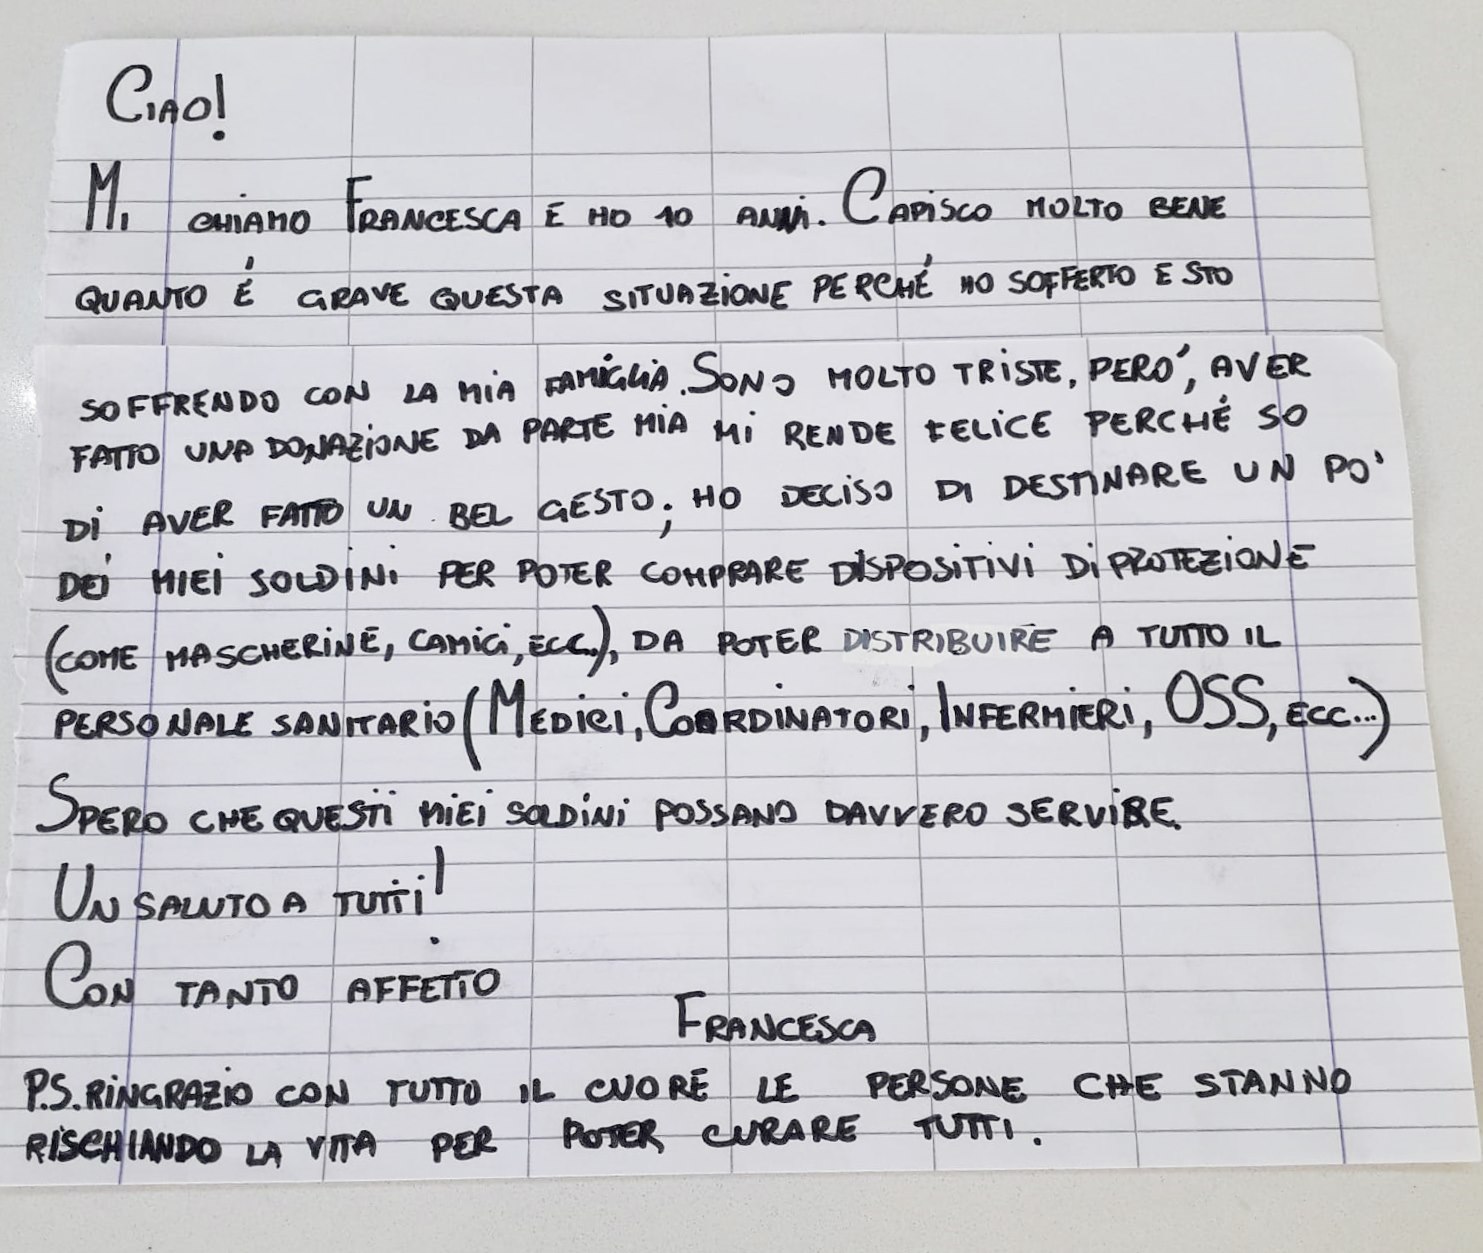 CIAO!
MI CHIAMO FRANCESCA E HO 10 ANNI. CAPISCO MOLTO BENE
QUANTO É GRAVE QUESTA SITUAZIONE PERCHÉ HO SOFFERTO E STO
SOFFRENDO CON LA MIA FAMIGLIA. SONO MOLTO TRISTE, PERO', AVER
FATTO UNA DONAZIONE DA PARTE MIA MI RENDE FELICE PERCHÉ SO
DI AVER FATTO UN BEL GESTO; HO DECISO DI DESTINARE UN PO'
DEI MIEI SOLDINI PER POTER COMPRARE DISPOSITIVI DI PROTEZIONE
(COME MASCHERINE, CAMICI, ECC..), DA POTER DISTRIBUIRE A TUTTO IL
PERSONALE SANITARIO (MEDICI, COORDINATORI, INFERMIERI, OSS, ECC...)
SPERO CHE QUESTI MIEI SOLDINI POSSANO DAVVERO SERVIRE.
UN SALUTO A TUTTI!
CON TANTO AFFETTO
FRANCESCA
P.S. RINGRAZIO CON TUTTO IL CUORE LE PERSONE CHE STANNO
RISCHIANDO LA VITA PER POTER CURARE TUTTI.